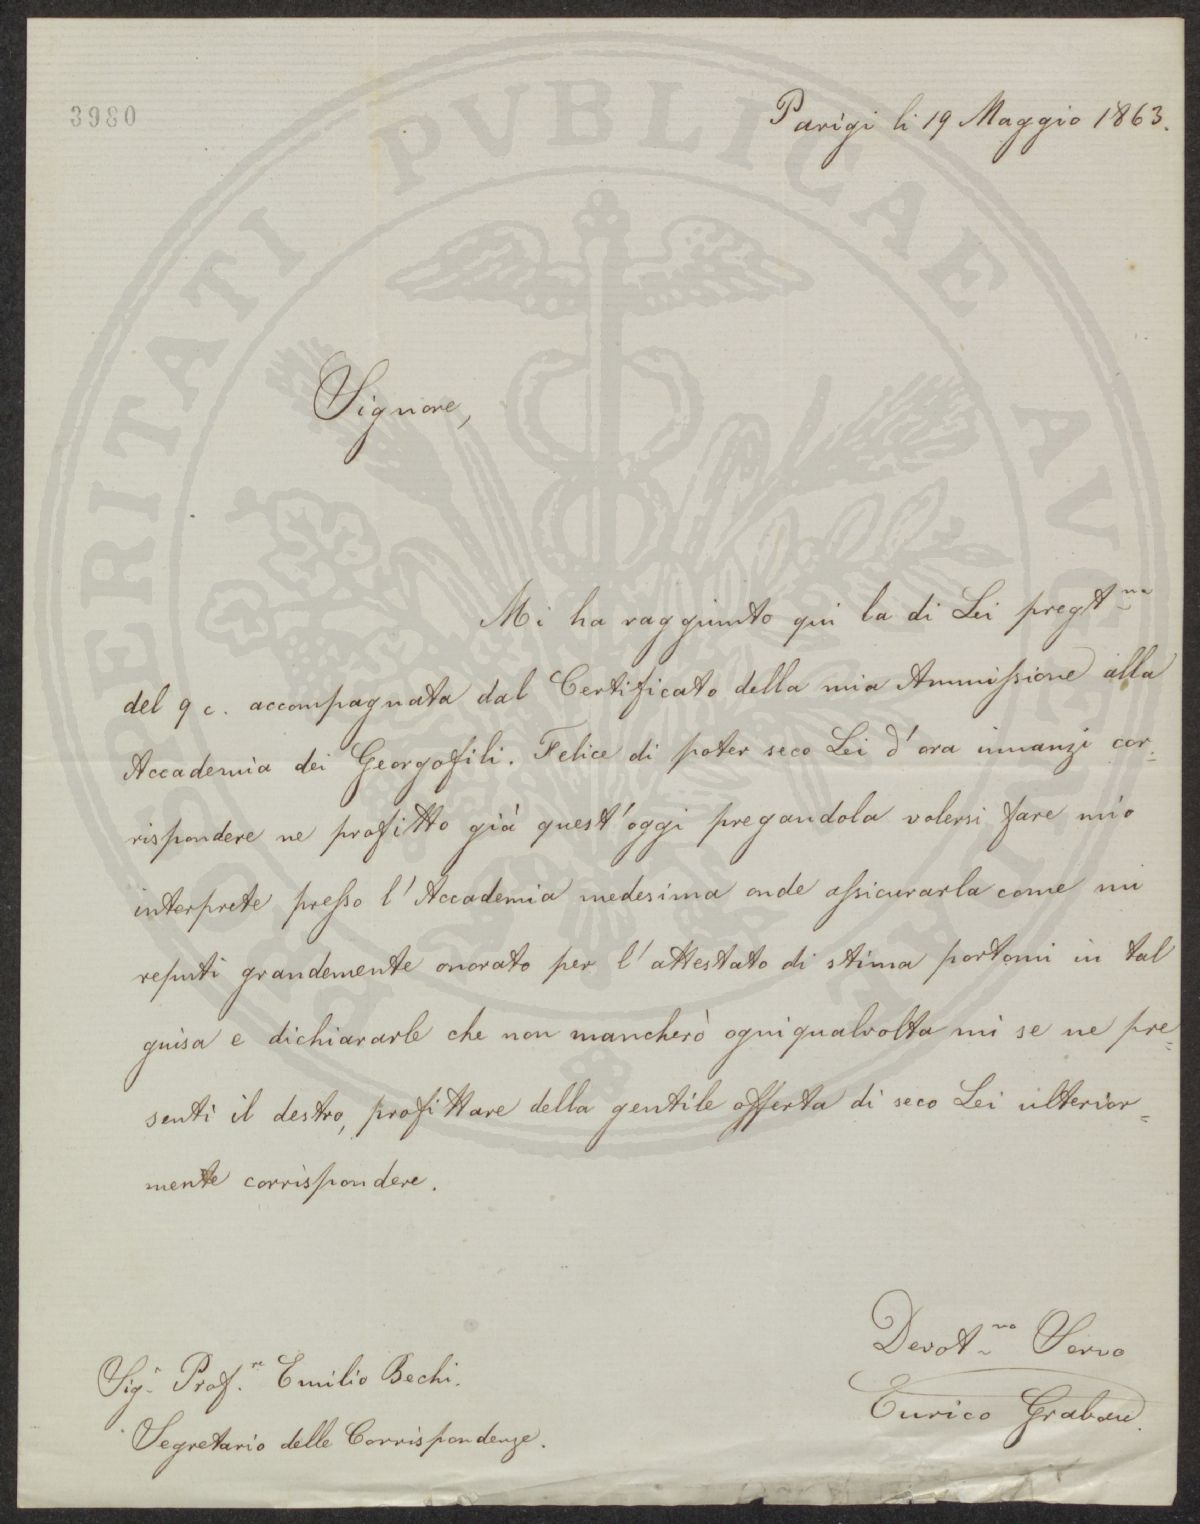 3980
Parigi li 19 Maggio 1863.
Signore,
Mi ha raggiunto qui la di Lei pregt.ma
del 9 c. accompagnata dal Certificato della mia Ammissione alla
Accademia dei Georgofili. Felice di poter seco Lei d'ora innanzi cor=
rispondere ne profitto già quest'oggi pregandola volersi fare mio
interprete presso l'Accademia medesima onde assicurarla come mi
reputi grandemente onorato per l'attestato di stima portomi in tal
guisa e dichiararle che non mancherò ogniqualvolta mi se ne pre=
senti il destro, profittare della gentile offerta di seco Lei ulterior=
mente corrispondere.
Devot.mo Servo
Enrico Grabau
Sig.r Prof.re Emilio Bechi.
Segretario delle Corrispondenze.
PROSPERITATI PVBLICAE AVGENDAE